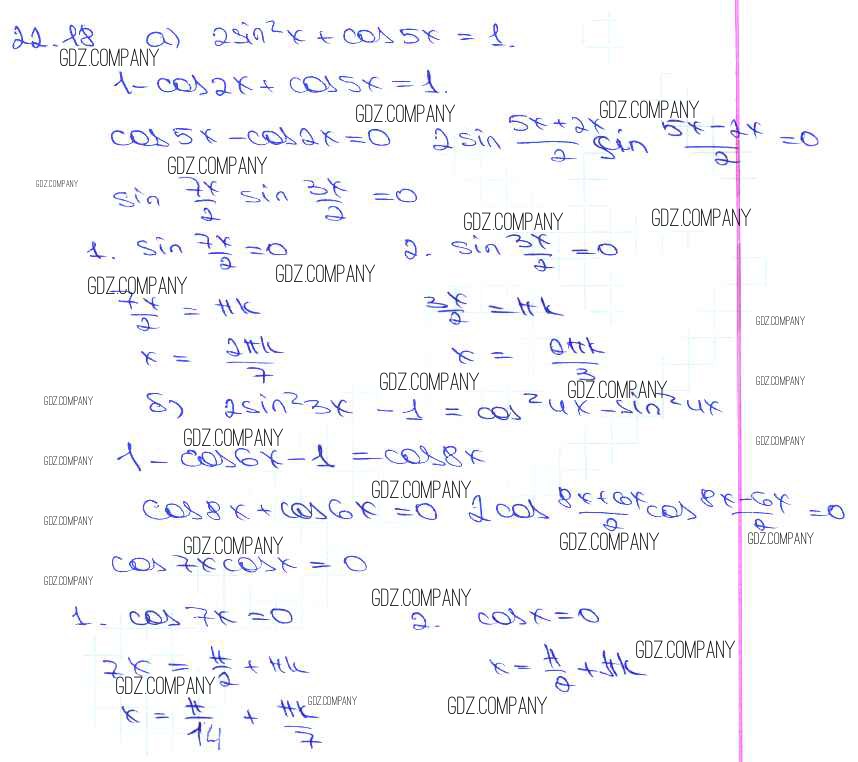 22.18 а) 2sin²x + cos5x = 1.
GDZ.COMPANY
1 - cos2x + cos5x = 1.
GDZ.COMPANY GDZ.COMPANY
cos5x - cos2x = 0 2sin (5x+2x)/2 sin (5x-2x)/2 = 0
GDZ.COMPANY
GDZ.COMPANY
sin 7x/2 sin 3x/2 = 0
GDZ.COMPANY GDZ.COMPANY
1. sin 7x/2 = 0 2. sin 3x/2 = 0
GDZ.COMPANY GDZ.COMPANY
7x/2 = πk 3x/2 = πk
GDZ.COMPANY
x = 2πk/7 x = 2πk/3
GDZ.COMPANY GDZ.COMPANY GDZ.COMPANY
GDZ.COMPANY
б) 2sin²3x - 1 = cos²4x - sin²4x
GDZ.COMPANY GDZ.COMPANY
1 - cos6x - 1 = cos8x
GDZ.COMPANY GDZ.COMPANY
cos8x + cos6x = 0 2cos (8x+6x)/2 cos (8x-6x)/2 = 0
GDZ.COMPANY
GDZ.COMPANY GDZ.COMPANY GDZ.COMPANY
cos7x cosx = 0
GDZ.COMPANY
GDZ.COMPANY
1. cos7x = 0 2. cosx = 0
GDZ.COMPANY
7x = π/2 + πk x = π/2 + πk
GDZ.COMPANY GDZ.COMPANY GDZ.COMPANY
x = π/14 + πk/7